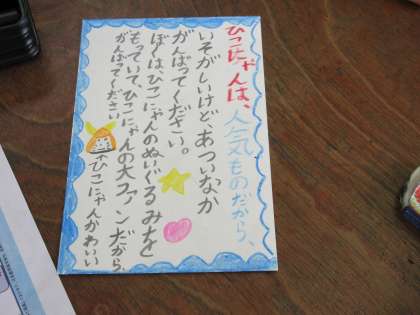 ひこにゃんは、人気ものだから、
いそがしいけど、あついなか
がんばってください。
ぼくは、ひこにゃんのぬいぐるみを
もっていて、ひこにゃんの大ファンだから
がんばってください
ひこにゃんがかわいい